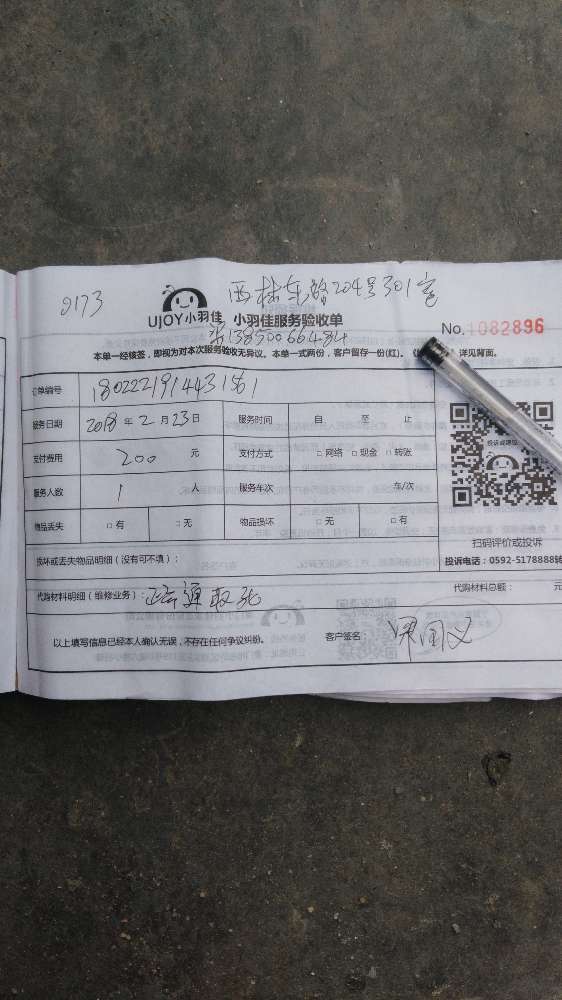 0173
西林东路204号301室
UJOY小羽佳 小羽佳服务验收单
13850066484
No.1082896
本单一经核签，即视为对本次服务验收无异议。本单一式两份，客户留存一份(红)。 详见背面。
订单编号
服务日期 2018 年 2 月 23 日 服务时间 自 至 止
支付费用 200 元 支付方式 □ 网络 □ 现金 □ 转账
服务人数 1 人 服务车次 车/次
物品丢失 □ 有 □ 无 物品损坏 □ 无 □ 有
扫码评价或投诉
损坏或丢失物品明细（没有可不填）：
投诉电话：0592-5178888转
代购材料明细（维修业务）： 疏通 代购材料总额： 元
以上填写信息已经本人确认无误，不存在任何争议纠纷。 客户签名：